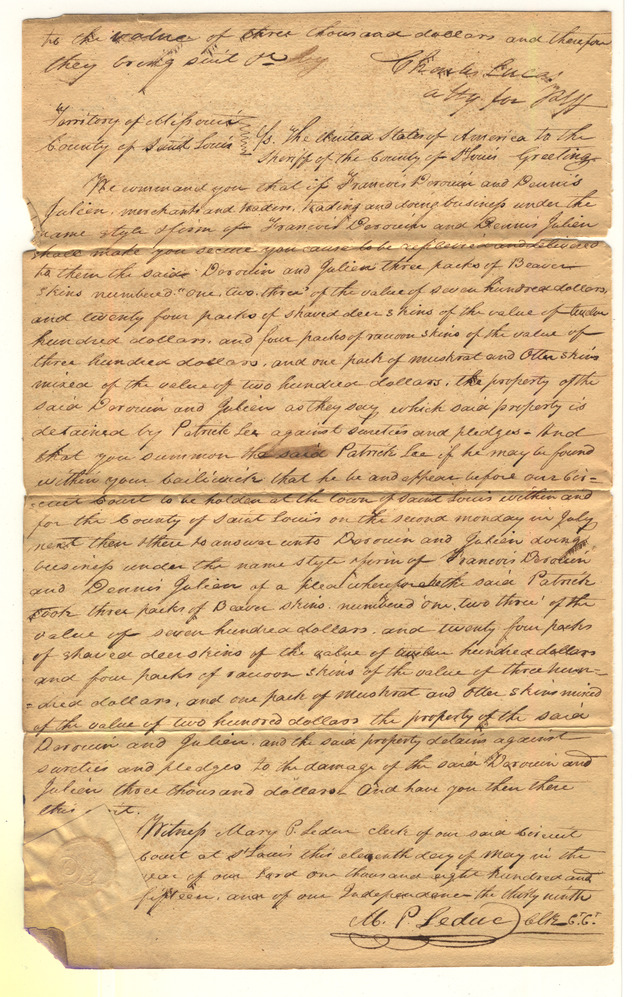 to the value of three thousand dollars and therefore
they bring suit &c by
Charles Lucas
atty for Plff
Territory of Missouri
County of Saint Louis } Ss. The United States of America to the
Sheriff of the County of St Louis Greeting
We command you that if Francois Dorouin and Dennis
Julien, merchants and traders, trading and doing business under the
name style & firm of Francois Dorouin and Dennis Julien
shall make you secure you cause to be replevied and delivered
to them the said Dorouin and Julien three packs of Beaver
skins numbered "one, two, three" of the value of seven hundred dollars,
and twenty four packs of shaved deer skins of the value of twelve
hundred dollars, and four packs of racoon skins of the value of
three hundred dollars, and one pack of muskrat and Otter skins
mixed of the value of two hundred dollars, the property of the
said Dorouin and Julien as they say, which said property is
detained by Patrick Lee against sureties and pledges - And
that you summon the said Patrick Lee if he may be found
within your bailiwick that he be and appear before our Cir=
=cuit Court to be holden at the town of Saint Louis within and
for the County of Saint Louis on the second monday in July
next then & there to answer unto Dorouin and Julien doing
business under the name style & firm of Francois Dorouin
and Dennis Julien of a plea wherefore the said Patrick
took three packs of Beaver skins, numbered 'one, two three' of the
value of seven hundred dollars, and twenty four packs
of shaved deer skins of the value of twelve hundred dollars
and four packs of racoon skins of the value of three hun=
=dred dollars, and one pack of Muskrat and Otter skins mixed
of the value of two hundred dollars the property of the said
Dorouin and Julien, and the said property detains against
sureties and pledges to the damage of the said Dorouin and
Julien three thousand dollars - And have you then there
this
Witness Mary P. Leduc clerk of our said Circuit
Court at St Louis this eleventh day of May in the
year of our Lord one thousand eight hundred and
fifteen, and of our Independence the thirty ninth
M. P. Leduc Clk C. Ct.